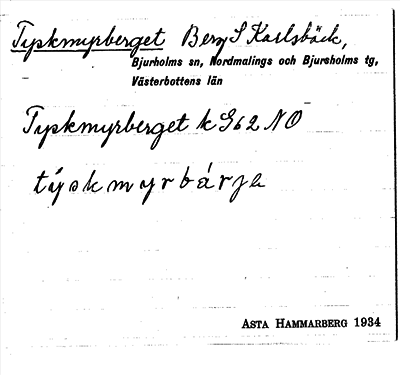 Tyskmyrberget Berg S Karlsbäck,
Bjurholms sn, Nordmalings och Bjurholms tg,
Västerbottens län
Tyskmyrberget k G62 NO
týskmyrbárjə
ASTA HAMMARBERG 1934